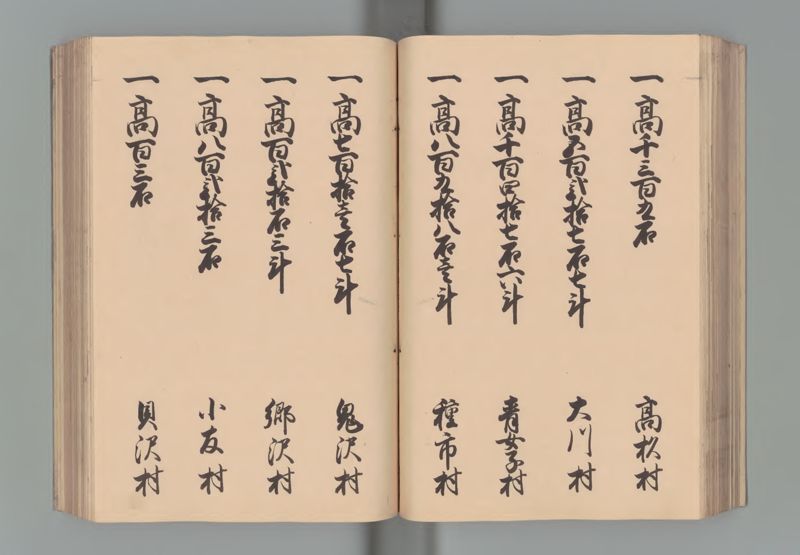 一 高千三百五石 高杉村
一 高五百弐拾七石七斗 大川村
一 高千百四拾七石六斗 青女子村
一 高八百九拾八石壱斗 種市村
一 高七百拾壱石七斗 鬼沢村
一 高百弐拾石三斗 郷沢村
一 高八百弐拾三石 小友村
一 高百三石 貝沢村